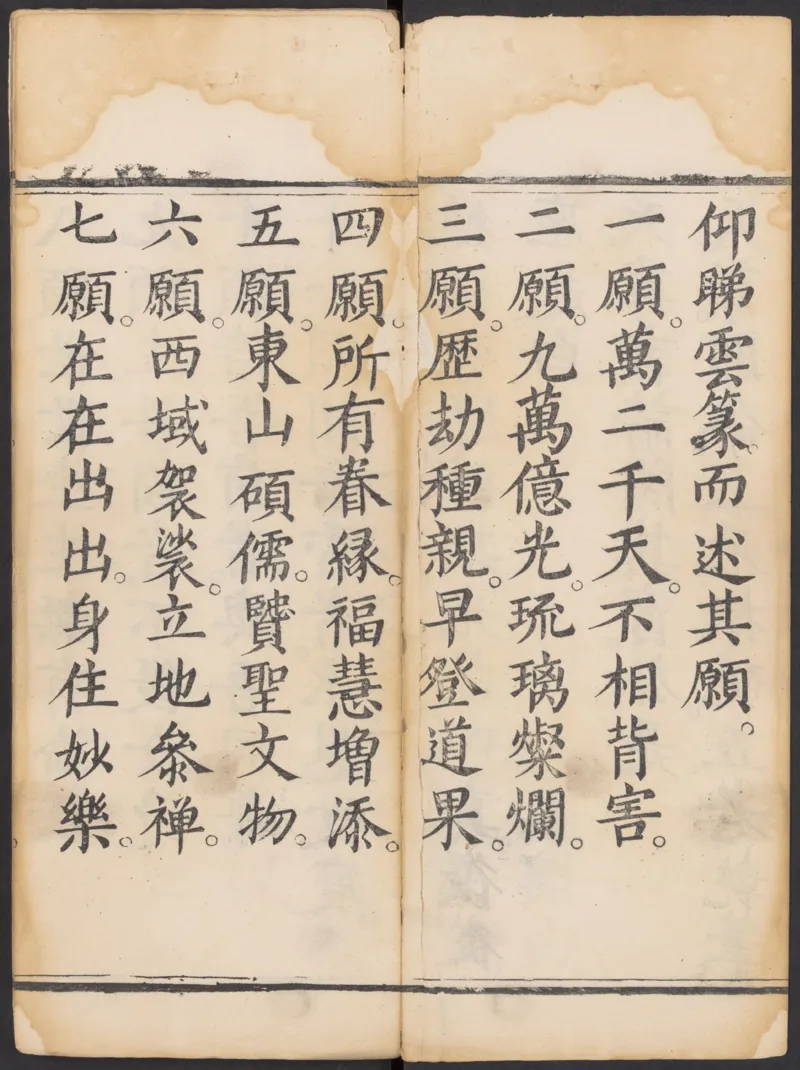 仰睇雲篆。而述其願。
一願。萬二千天。不相背害。
二願。九萬億光。琉璃燦爛。
三願。歴劫種親。早登道果。
四願。所有眷縁。福慧增添。
五願。東山碩儒。賢聖文物。
六願。西域袈裟。立地叅禅。
七願。在在出出。身住妙樂。